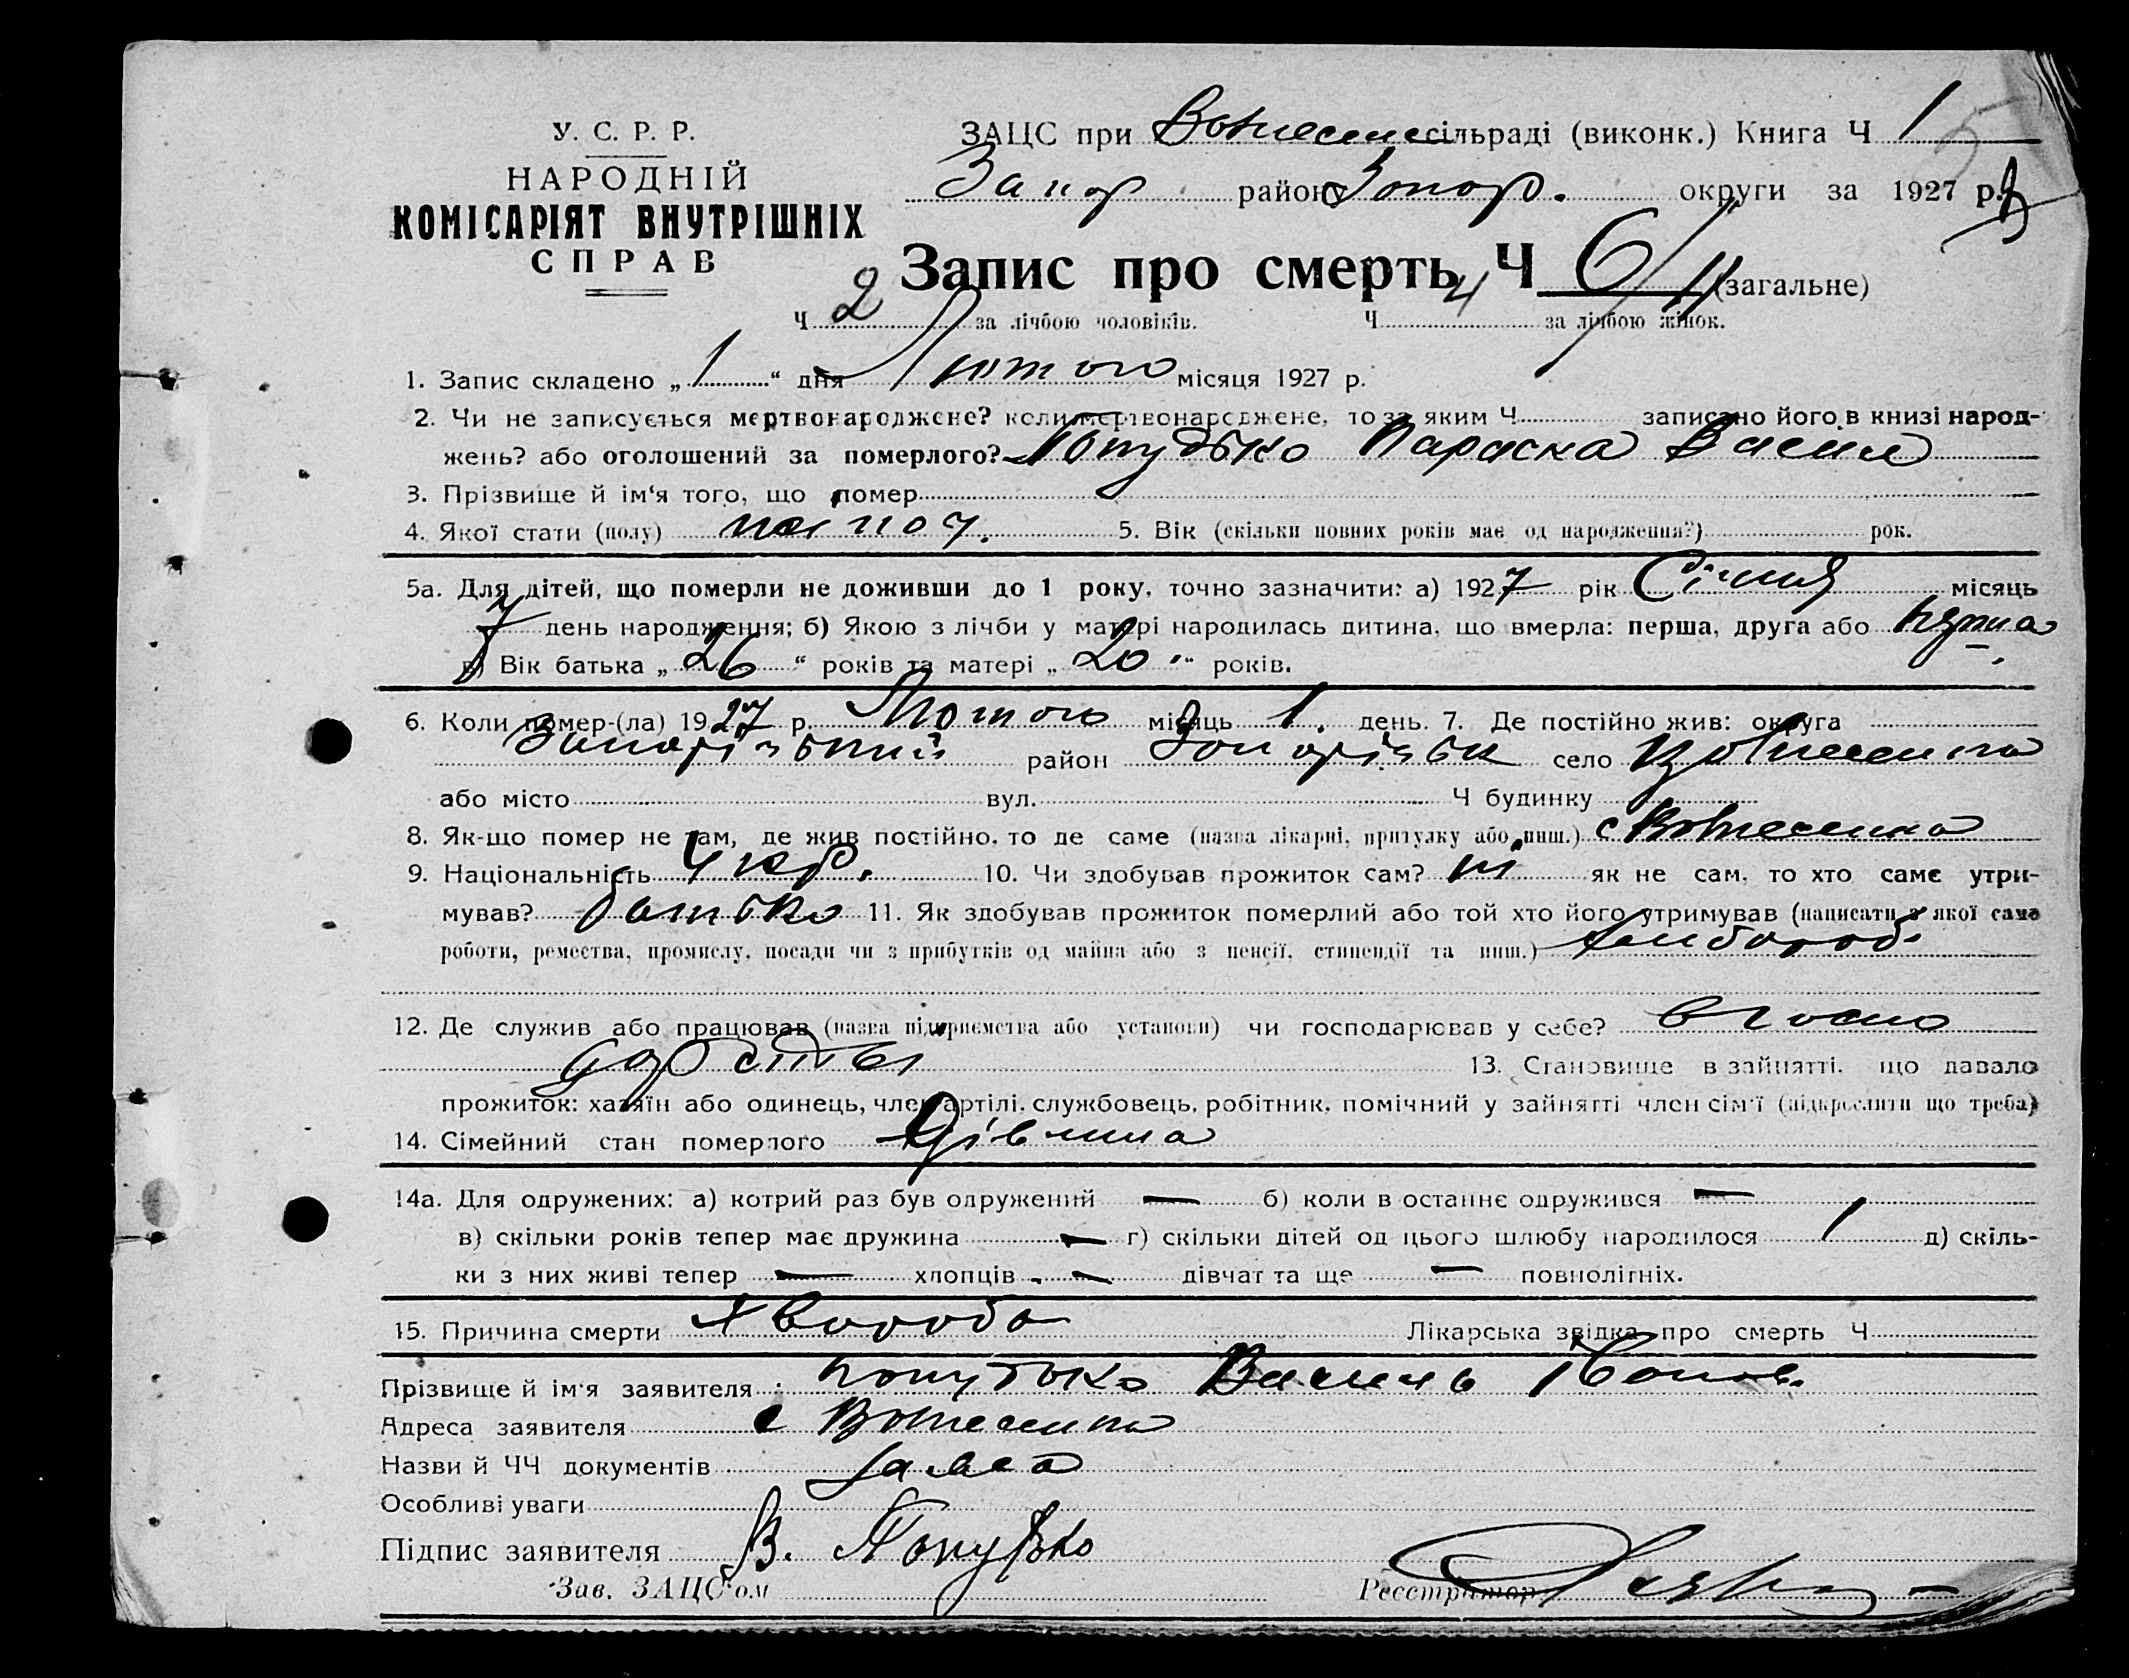 У. С. Р. Р.
НАРОДНІЙ
КОМІСАРІЯТ ВНУТРІШНІХ
СПРАВ
ЗАЦС при сільраді (виконк.) Книга Ч 1
Запор району Запор. округи за 1927 р.
Запис про смерть Ч 6 (загальне)
Ч 2 за лічбою чоловіків. Ч 4 за лічбою жінок.
1. Запис складено „ 1 “ дня Лютого місяця 1927 р.
2. Чи не записується мертвонароджене? коли мертвонароджене, то за яким Ч записано його в книзі народ-
жень? або оголошений за померлого? Параска Васил
3. Прізвище й ім‘я того, що помер
4. Якої стати (полу) 5. Вік (скільки повних років має од народження?) рок.
5а. Для дітей, що померли не доживши до 1 року, точно зазначити: а) 1927 рік Січня місяць
7 день народження; б) Якою з лічби у матері народилась дитина, що вмерла: перша, друга або перша
в) Вік батька „ 26 “ років та матері „ 20 “ років.
6. Коли помер-(ла) 1927 р. Лютого місяць 1. день. 7. Де постійно жив: округа
Запорізький район Запорізьк село Вознесенка
або місто вул. Ч будинку
8. Як-що помер не там, де жив постійно, то де саме (назва лікарні, притулку або инш.) с Вознесенка
9. Національність Укр. 10. Чи здобував прожиток сам? ні як не сам, то хто саме утри-
мував? батько 11. Як здобував прожиток померлий або той хто його утримував (написати з якої саме
роботи, ремества, промислу, посади чи з прибутків од майна або з пенсії, стипендії та инш.) хлібороб
12. Де служив або працював (назва підприємства або установи) чи господарював у себе? в госпо
дарстві 13. Становище в зайнятті, що давало
прожиток: хазяїн або одинець, член артілі, службовець, робітник, помічний у зайнятті член сім‘ї (підкреслити що треба)
14. Сімейний стан померлого Дівчина
14а. Для одружених: а) котрий раз був одружений — б) коли в останнє одружився —
в) скільки років тепер має дружина — г) скільки дітей од цього шлюбу народилося 1 д) скіль-
ки з них живі тепер — хлопців — дівчат та ще — повнолітніх.
15. Причина смерти Хвороба Лікарська звідка про смерть Ч
Прізвище й ім‘я заявителя Василь
Адреса заявителя с Вознесенка
Назви й ЧЧ документів
Особливі уваги
Підпис заявителя В.
Зав. ЗАЦС‘ом Реєстратор